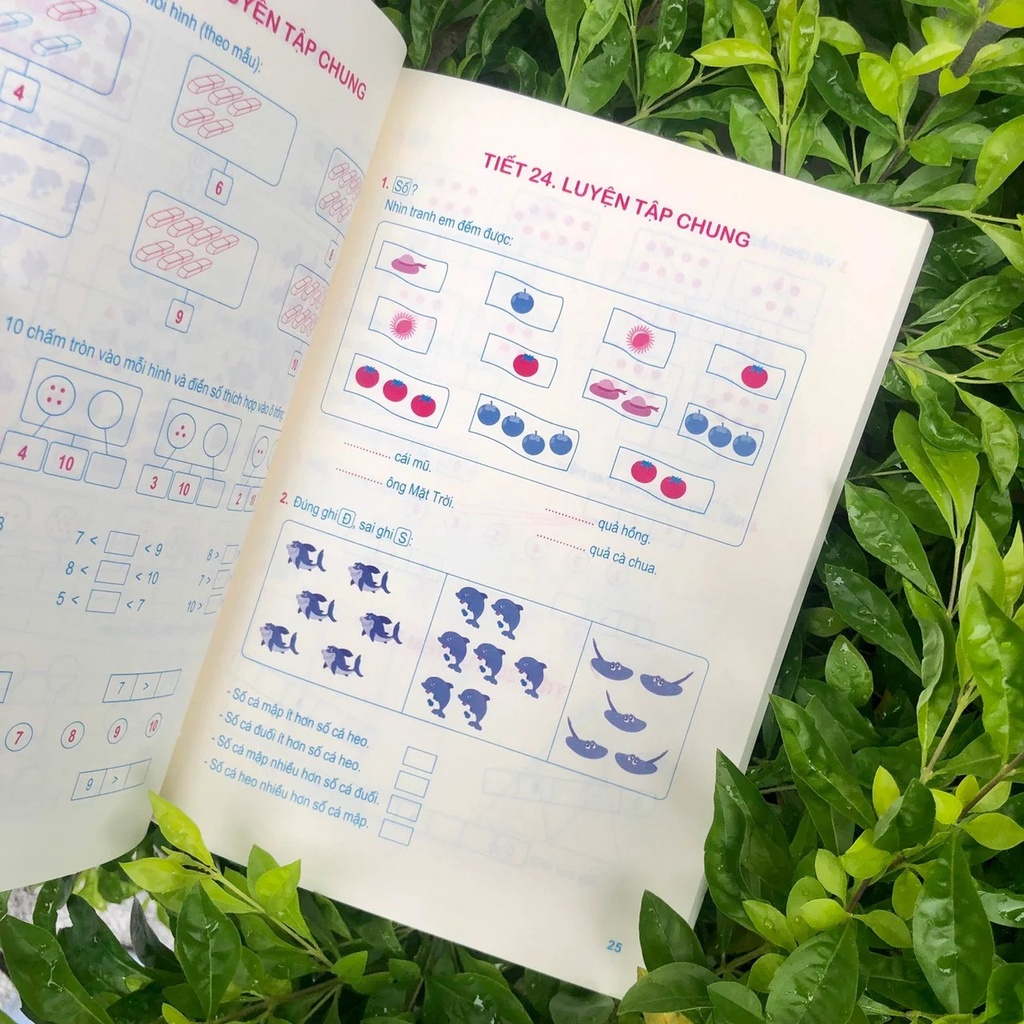 LUYỆN TẬP CHUNG
mỗi hình (theo mẫu):
4
6
9
10 chấm tròn vào mỗi hình và điền số thích hợp vào ô trống
4 10
3 10
7 < < 9
8 < < 10
5 < < 7
8 >
7 >
10 >
7 >
7 8 9 10
9 >
TIẾT 24. LUYỆN TẬP CHUNG
1. Số ?
Nhìn tranh em đếm được:
............ cái mũ.
............ ông Mặt Trời.
............ quả hồng.
............ quả cà chua.
2. Đúng ghi Đ, sai ghi S:
- Số cá mập ít hơn số cá heo.
- Số cá đuối ít hơn số cá heo.
- Số cá mập nhiều hơn số cá đuối.
- Số cá heo nhiều hơn số cá mập.
25